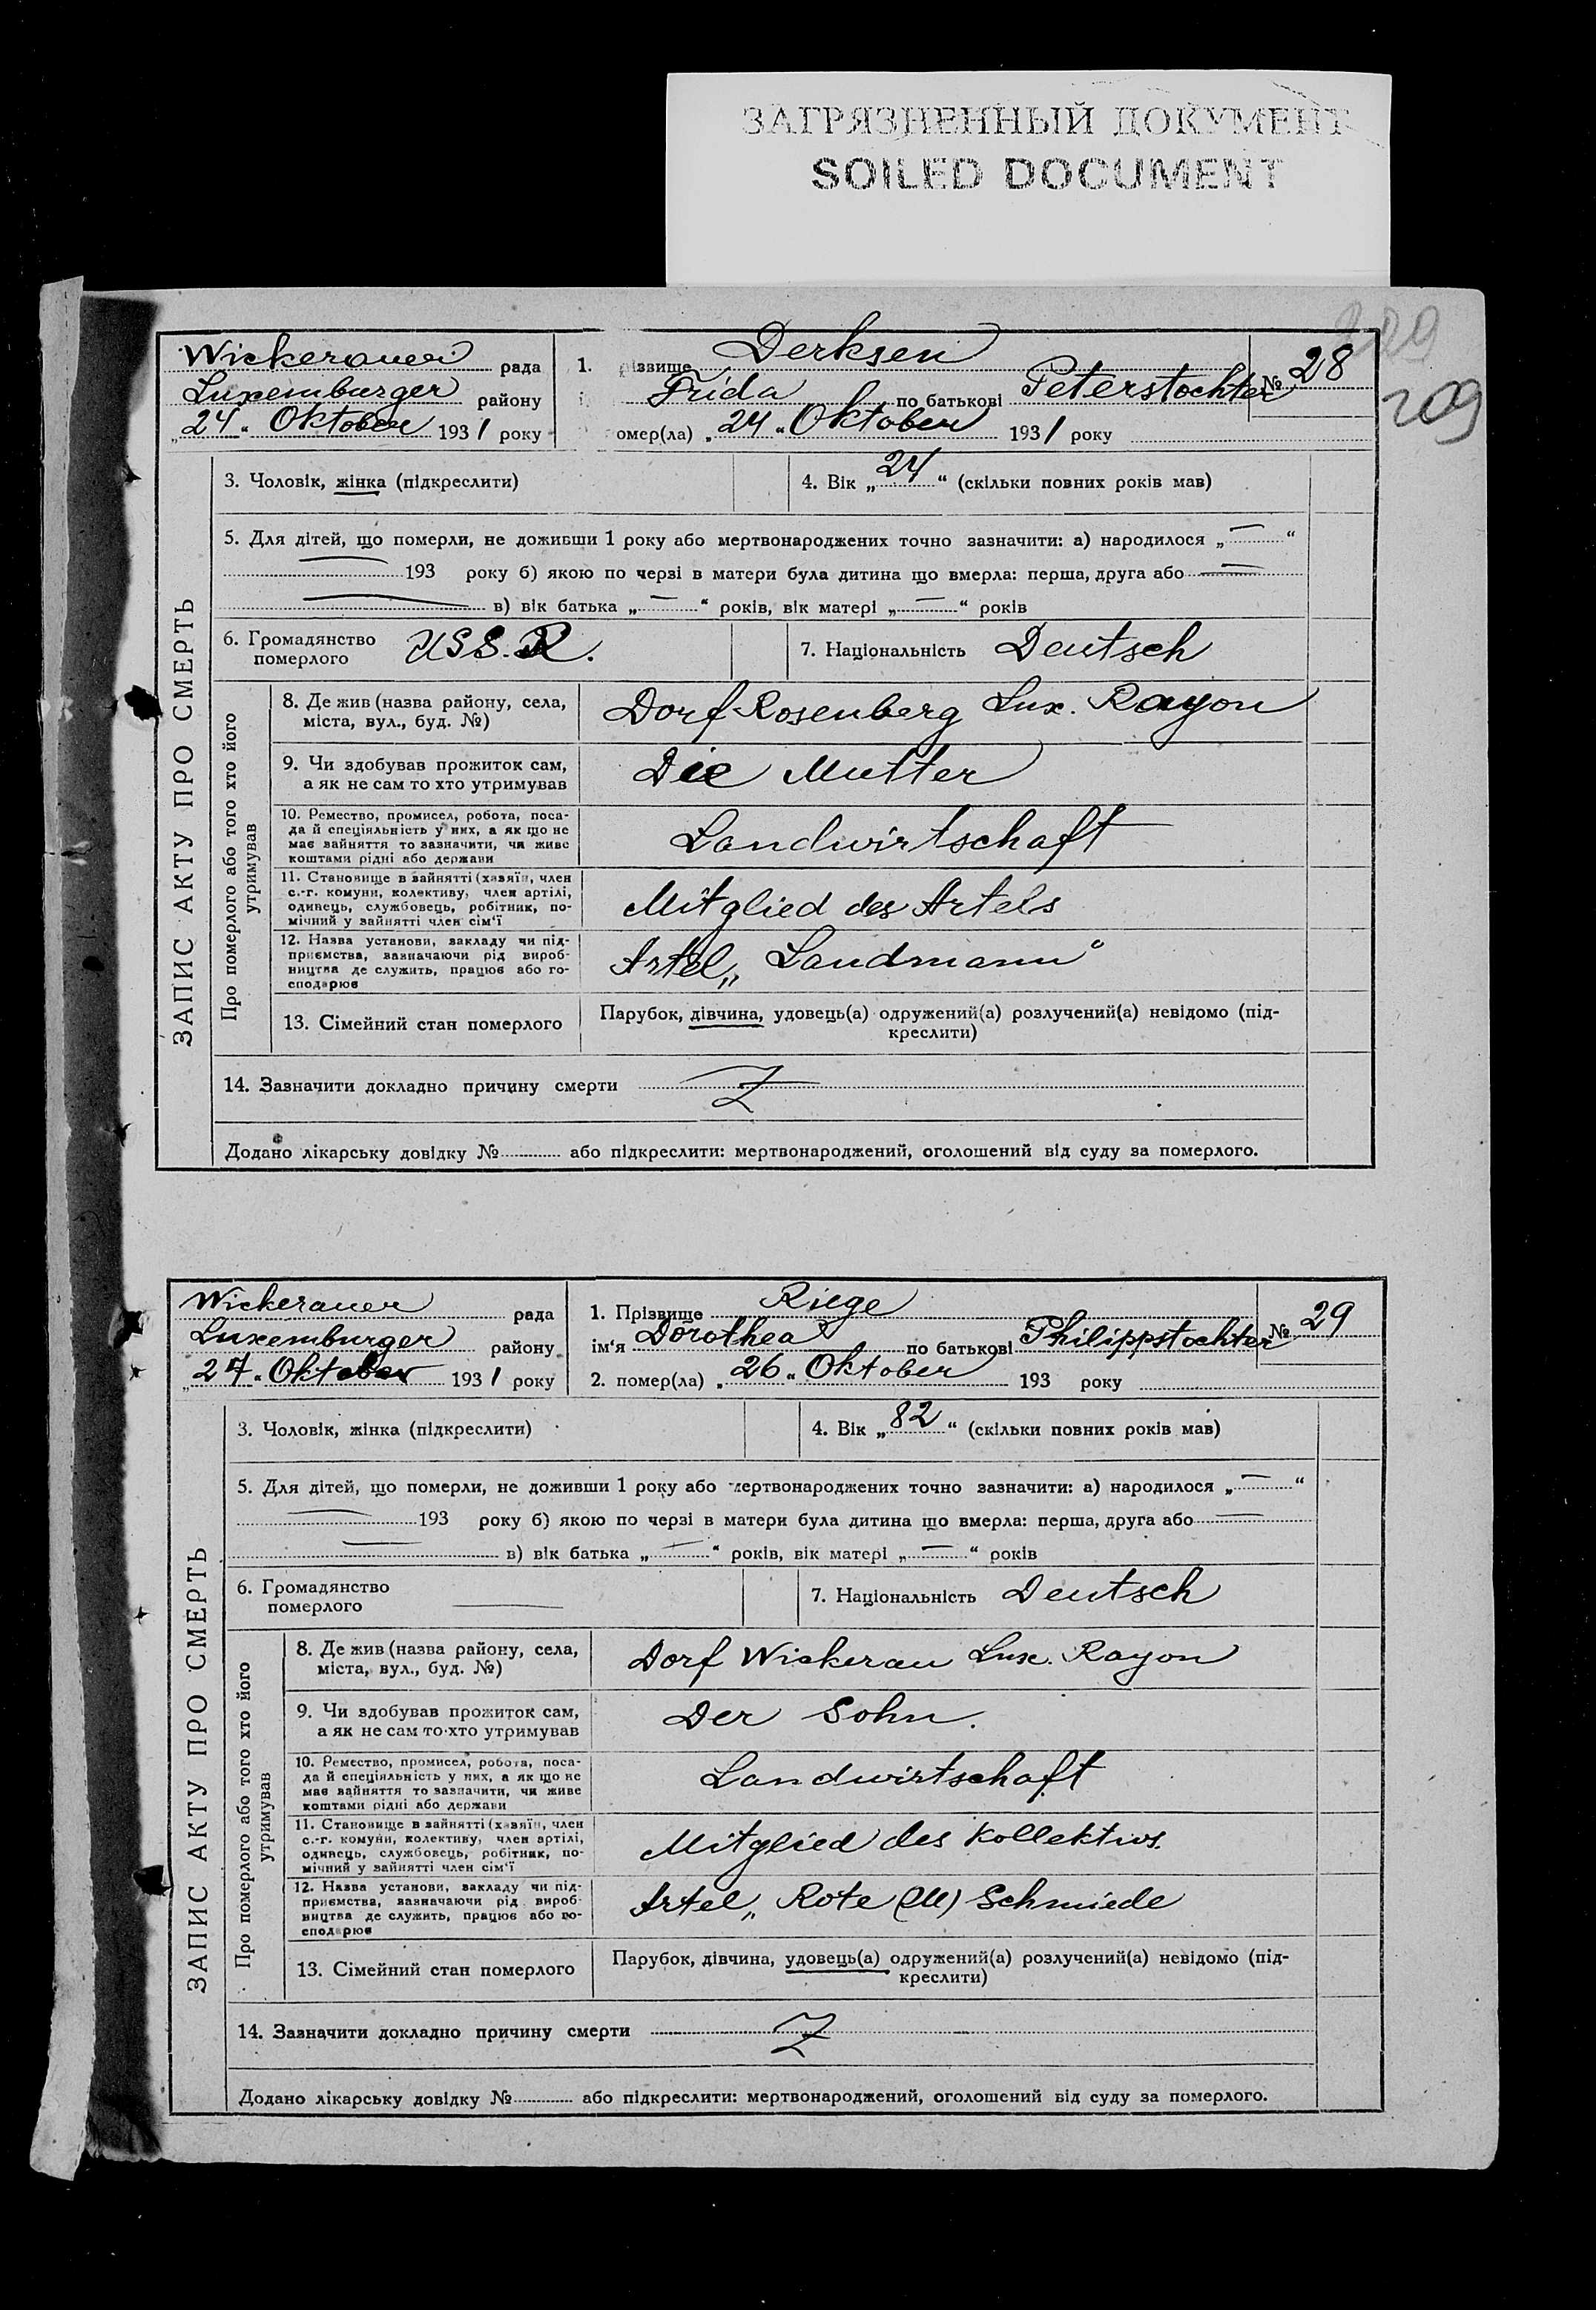 ЗАГРЯЗНЕННЫЙ ДОКУМЕНТ
SOILED DOCUMENT
209
Wickerauer рада
Luxemburger району
„24„ Oktober 1931 року
1. різвище Derksen
Frida по батькові Peterstochter
омер(ла) „24„ Oktober 1931 року
№ 28
3. Чоловік, жінка (підкреслити)
4. Вік „24“ (скільки повних років мав)
5. Для дітей, що померли, не доживши 1 року або мертвонароджених точно зазначити: а) народилося „—“
— 193 року б) якою по черзі в матери була дитина що вмерла: перша, друга або —
— в) вік батька „—“ років, вік матері „—“ років
6. Громадянство
померлого
USS.R.
7. Національність Deutsch
ЗАПИС АКТУ ПРО СМЕРТЬ
Про померлого або того хто його
утримував
8. Де жив (назва району, села,
міста, вул., буд. №)
Dorf Rosenberg Lux. Rayon
9. Чи здобував прожиток сам,
а як не сам то хто утримував
Die Mutter
10. Ремество, промисел, робота, поса-
да й спеціяльність у них, а як що не
має зайняття то зазначити, чи живе
коштами рідні або держави
Landwirtschaft
11. Становище в зайнятті (хазяїн, член
с.-г. комуни, колективу, член артілі,
одинець, службовець, робітник, по-
мічний у зайнятті член сім‘ї
Mitglied des Artels
12. Назва установи, закладу чи під-
приємства, зазначаючи рід вироб-
ництва де служить, працює або го-
сподарює
Artel „Landmann“
13. Сімейний стан померлого
Парубок, дівчина, удовець(а) одружений(а) розлучений(а) невідомо (під-
креслити)
14. Зазначити докладно причину смерти
Додано лікарську довідку № або підкреслити: мертвонароджений, оголошений від суду за померлого.
Wickerauer рада
Luxemburger району
„27„ Oktober 1931 року
1. Прізвище Riege
ім‘я Dorothea по батькові Philippstochter
2. помер(ла) „26„ Oktober 193 року
№ 29
3. Чоловік, жінка (підкреслити)
4. Вік „82“ (скільки повних років мав)
5. Для дітей, що померли, не доживши 1 року або мертвонароджених точно зазначити: а) народилося „—“
— 193 року б) якою по черзі в матери була дитина що вмерла: перша, друга або —
— в) вік батька „—“ років, вік матері „—“ років
6. Громадянство
померлого
—
7. Національність Deutsch
ЗАПИС АКТУ ПРО СМЕРТЬ
Про померлого або того хто його
утримував
8. Де жив (назва району, села,
міста, вул., буд. №)
Dorf Wickerau Lux. Rayon
9. Чи здобував прожиток сам,
а як не сам то хто утримував
Der Sohn.
10. Ремество, промисел, робота, поса-
да й спеціяльність у них, а як що не
має зайняття то зазначити, чи живе
коштами рідні або держави
Landwirtschaft
11. Становище в зайнятті (хазяїн, член
с.-г. комуни, колективу, член артілі,
одинець, службовець, робітник, по-
мічний у зайнятті член сім‘ї
Mitglied des Kollektivs.
12. Назва установи, закладу чи під-
приємства, зазначаючи рід вироб-
ництва де служить, працює або го-
сподарює
Artel „Rote Schmiede
13. Сімейний стан померлого
Парубок, дівчина, удовець(а) одружений(а) розлучений(а) невідомо (під-
креслити)
14. Зазначити докладно причину смерти
Додано лікарську довідку № або підкреслити: мертвонароджений, оголошений від суду за померлого.